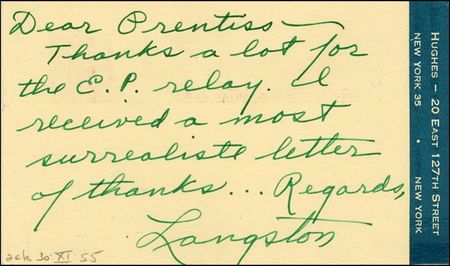 Dear Prentiss —
Thanks a lot for
the E.P. relay. I
received a most
surrealiste letter
of thanks... Regards,
Langston
ack 30·XI·55
HUGHES – 20 EAST 127TH STREET
NEW YORK 35 · NEW YORK